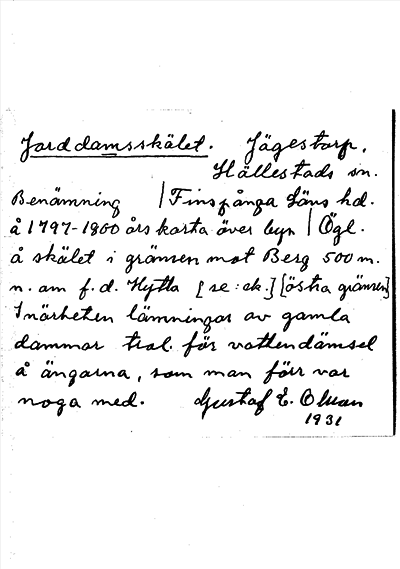 Jorddamsskälet. Jägestorp,
Hällestads sn.
Benämning | Finspånga läns hd.
å 1797-1800 års karta över byn | Ögl.
å skälet i gränsen mot Berg 500 m.
n. om f.d. Hytta [se: ek.] [östra gränsen]
I närheten lämningar av gamla
dammar trol. för vattendämsel
å ängarna, som man förr var
noga med. Gustaf E. Olsson
1931